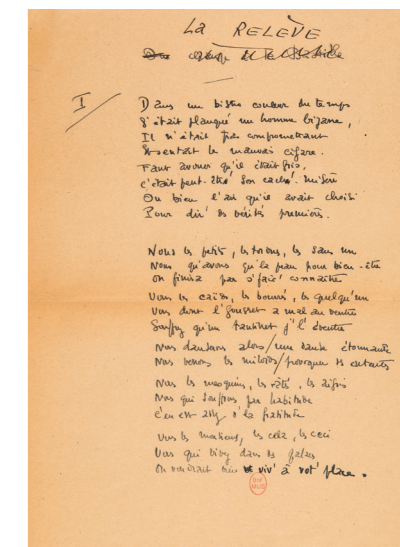 La RELÈVE
I
Dans un bistro couleur du temps
S'était planqué un homme bizarre,
Il n'était pas compromettant
Et sentait le mauvais cigare.
Faut avouer qu'il était gris,
c'était peut-être son caché-misère
Ou bien l'air qu'il avait choisi
Pour dir' des vérités premières.
Nous les petits, les , les sans un
Nous qu'avons qu'la peau pour bien-être
On finira par s'fair' connaître
Vous les caïds, les bourrés, les quelqu'un
Vous dont l'gousset a mal au ventre
Souffrez qu'un tantinet j'l'éventre
Nous dansons alors/une danse étonnante
Nous venons les milords/provoquer
Nous les mesquins, les ratés, les aigris
Nous qui souffrons par habitude
c'en est assez d'la
Vous les messieurs, les cela, les ceci
Vous qui vivez dans des palaces
On voudrait bien viv' à vot' place.
BIF
MUS